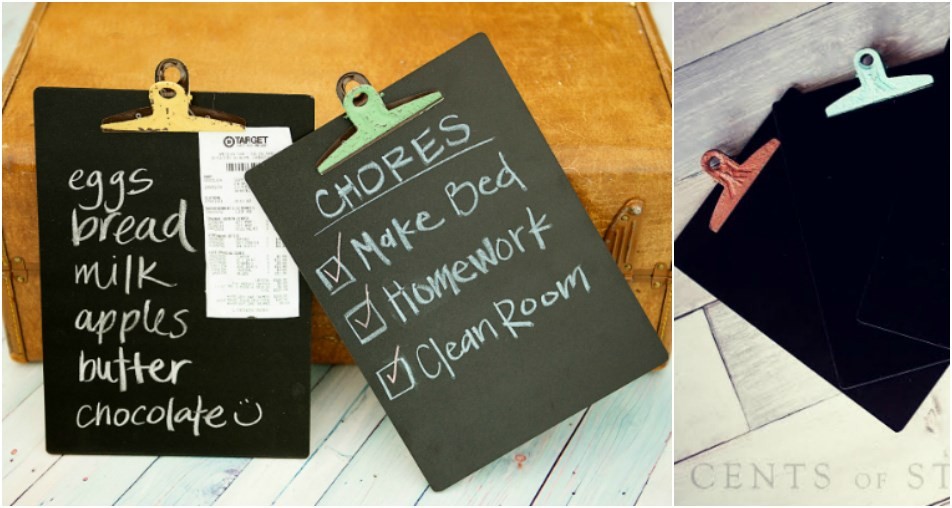 eggs
bread
milk
apples
butter
chocolate
TARGET
CHORES
Make Bed
Homework
Clean Room
CENTS OF ST